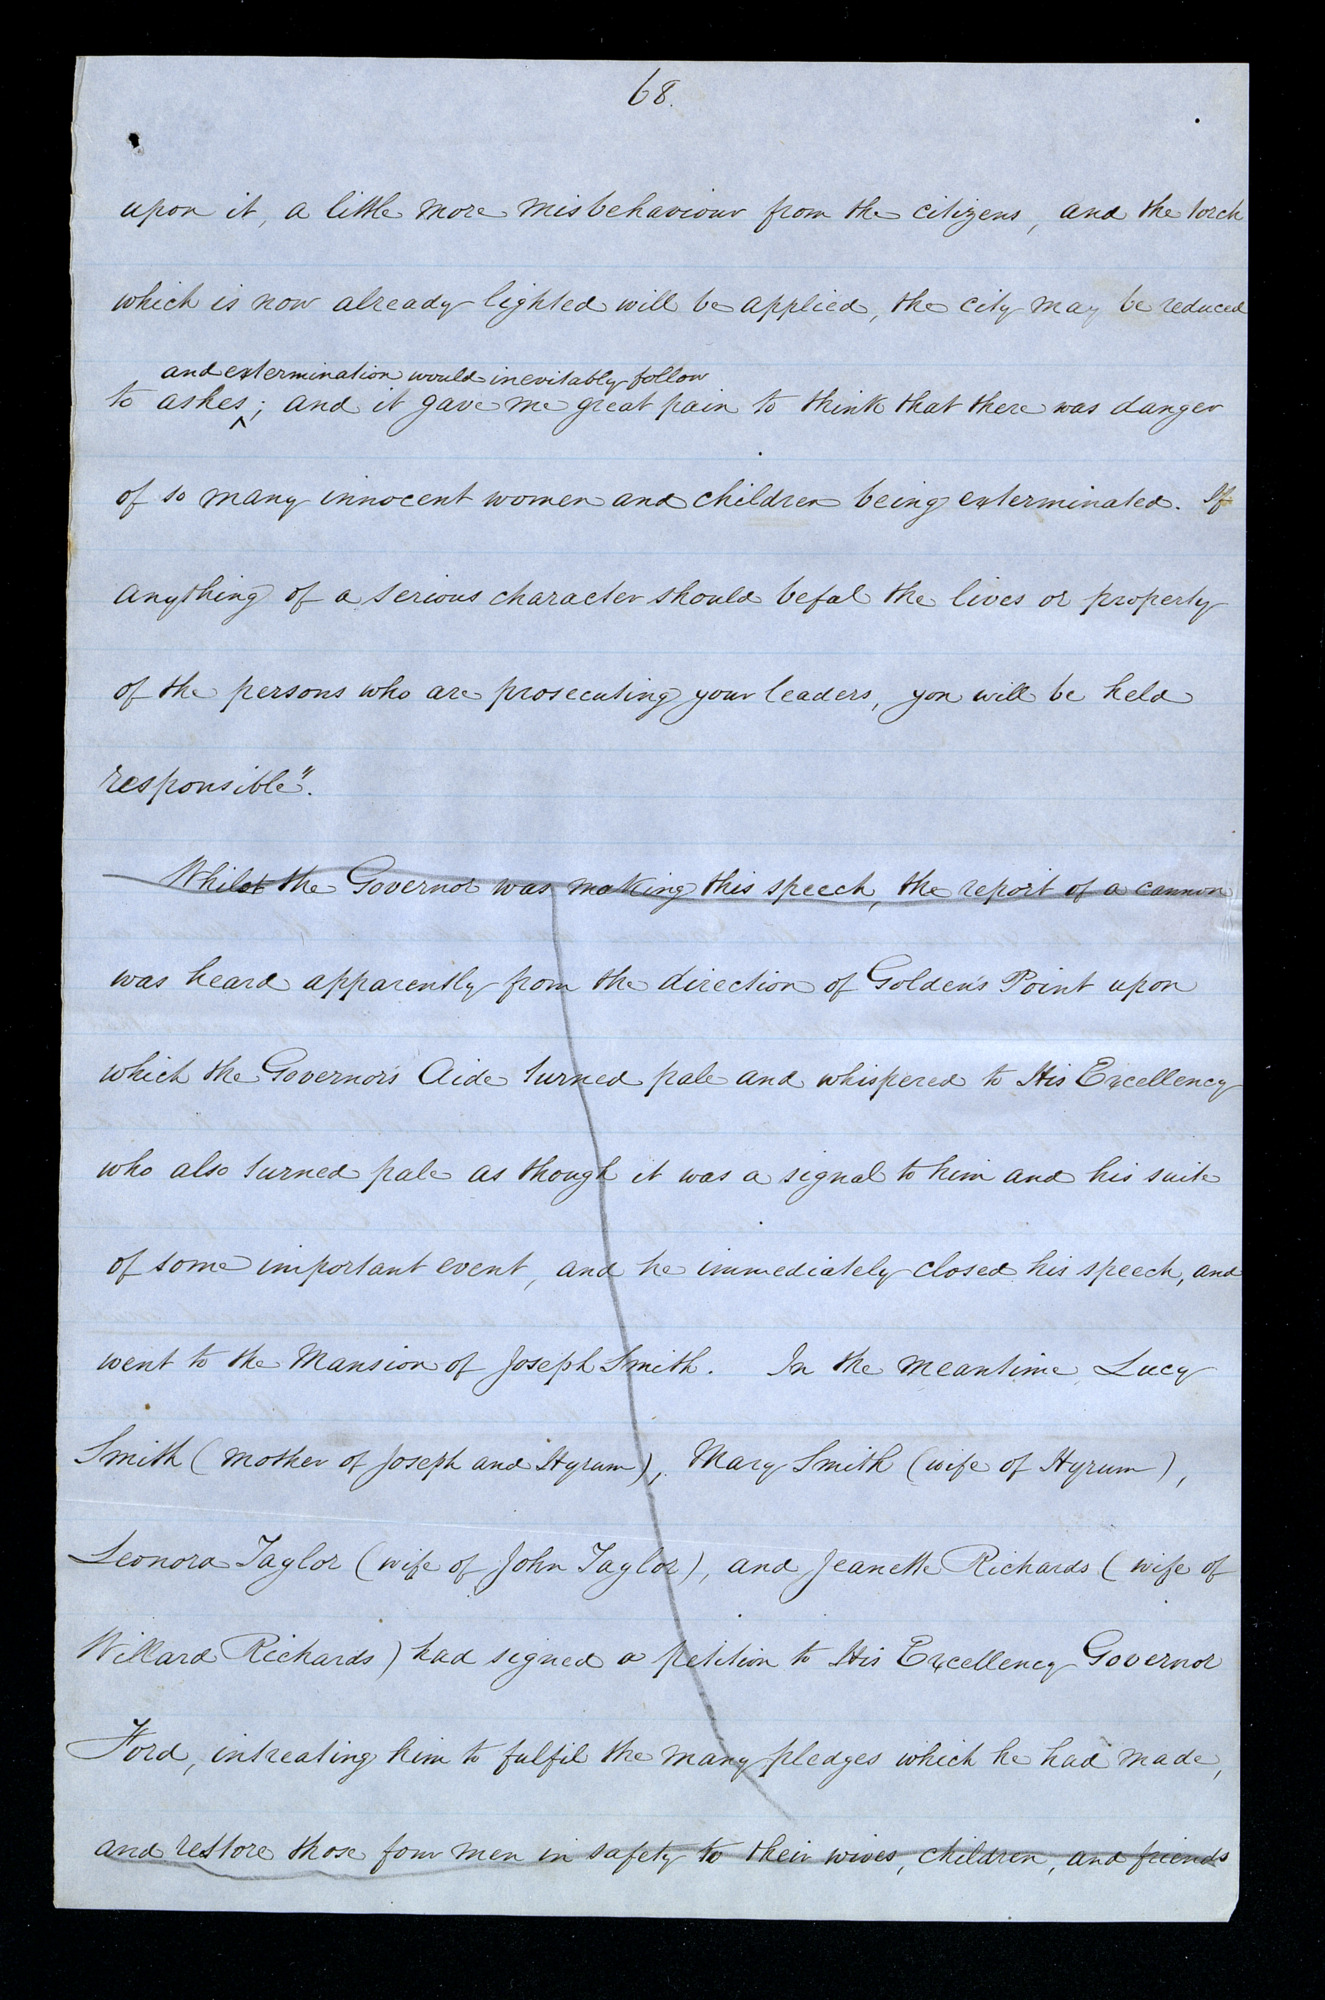 68.
upon it, a little more misbehaviour from the citizens, and the torch
which is now already lighted will be applied, the city may be reduced
and extermination would inevitably follow
to ashes ^; and it gave me great pain to think that there was danger
of so many innocent women and children being exterminated. If
anything of a serious character should befal the lives or property
of the persons who are prosecuting your leaders, you will be held
responsible".
Whilst the Governor was making this speech, the report of a cannon
was heard apparently from the direction of Golden's Point upon
which the Governor's Aide turned pale and whispered to His Excellency
who also turned pale as though it was a signal to him and his suite
of some important event, and he immediately closed his speech, and
went to the Mansion of Joseph Smith. In the meantime Lucy
Smith (mother of Joseph and Hyrum), Mary Smith (wife of Hyrum),
Leonora Taylor (wife of John Taylor), and Jeanette Richards (wife of
Willard Richards) had signed a petition to His Excellency Governor
Ford, intreating him to fulfil the many pledges which he had made,
and restore those four men in safety to their wives, children, and friends